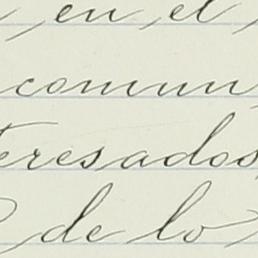 , en el
comun
teresados,
de lo